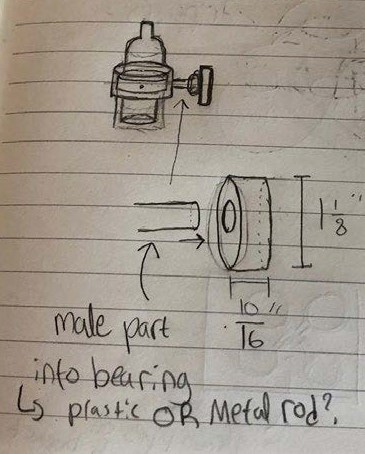 1 1/8"
10/16"
male part
into bearing
↳ plastic OR Metal rod?